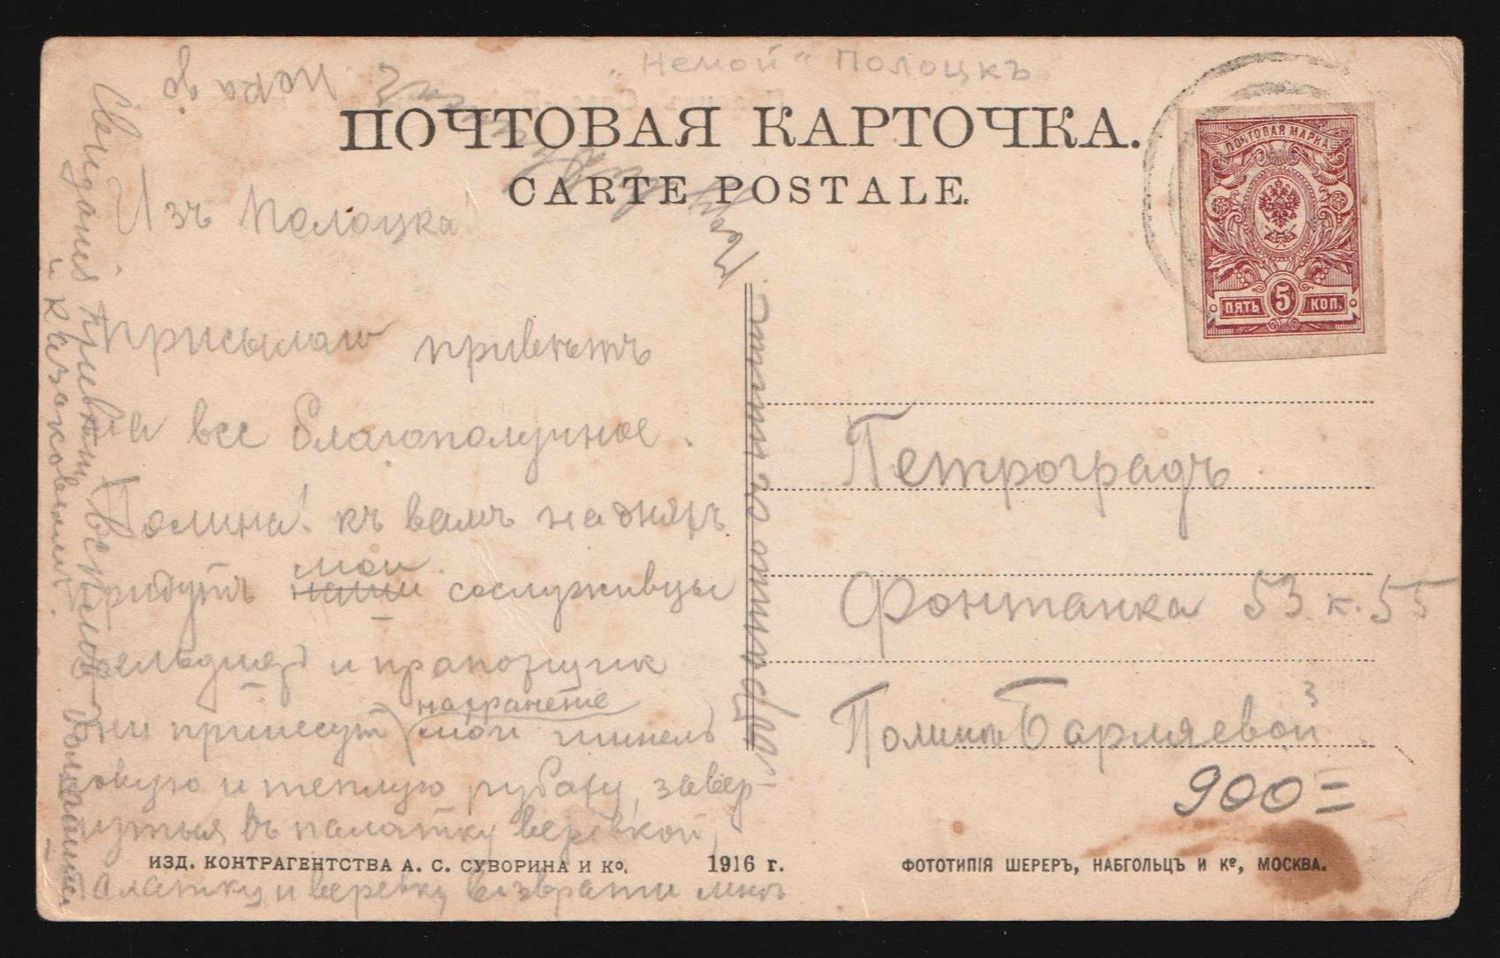 "Немой" Полоцкъ
ПОЧТОВАЯ КАРТОЧКА.
CARTE POSTALE.
ПОЧТОВАЯ МАРКА
ПЯТЬ 5 КОП.
Изъ Полоцка
Присылаю приветъ
и все благополучное.
Полина! къ вамъ на дняхъ
придутъ мои сослуживцы
фельдшеръ и прапорщик
они принесутъ на хранение мои шинель
новую и теплую рубаху, завер-
нутыя въ палатку веревкой,
палатку и веревку возврати мнѣ
пока до
Свиданія приветъ
и казаковымъ.
Петроградъ.
Фонтанка 53 к. 55
Полинѣ Барляевой
900=
ИЗД. КОНТРАГЕНТСТВА А. С. СУВОРИНА И Ко. 1916 г.
ФОТОТИПІЯ ШЕРЕРЪ, НАБГОЛЬЦЪ И Ко, МОСКВА.